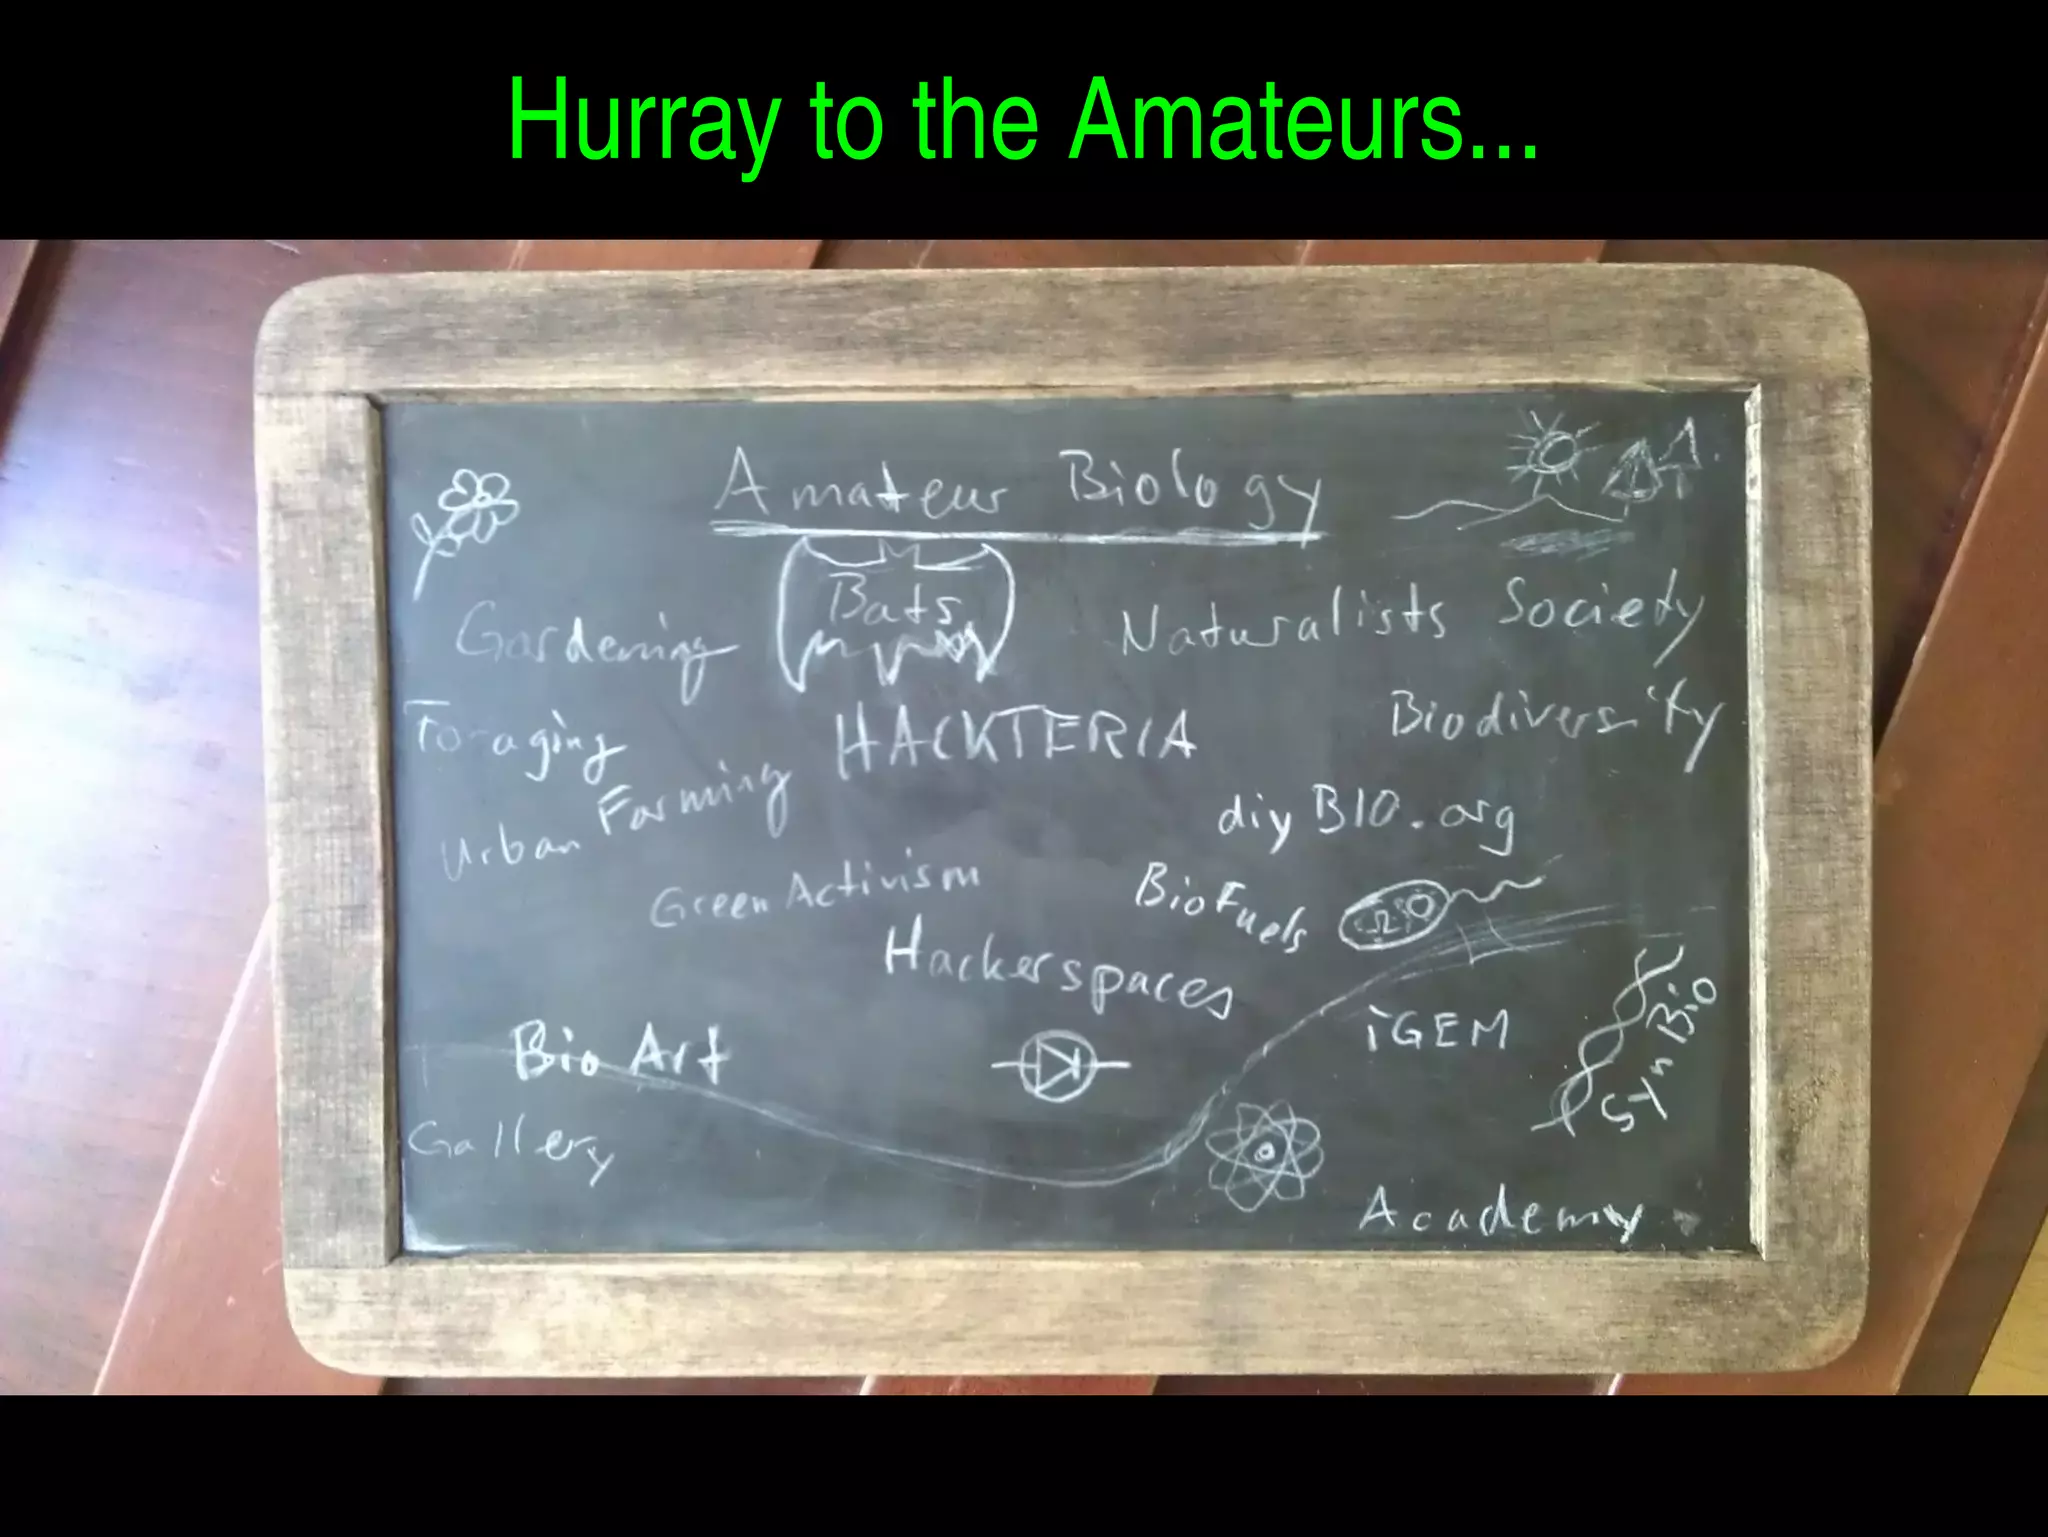 Hurray to the Amateurs...
Amateur Biology
Bats
Gardening
Naturalists Society
Foraging
HACKTERIA
Biodiversity
Urban Farming
diyBIO.org
Green Activism
BioFuels
Hackerspaces
Bio Art
iGEM
SynBio
Gallery
Academy